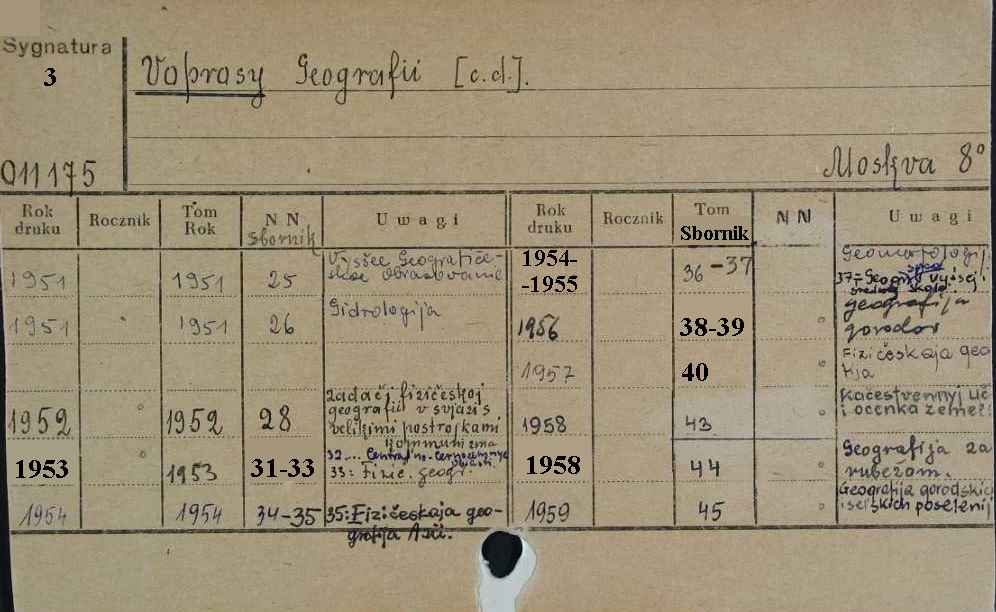 Sygnatura
3
Voprosy Geografii [c.d.].
011175
Moskva 8°
Rok druku Rocznik Tom Rok NN sbornik Uwagi Rok druku Rocznik Tom Sbornik NN Uwagi
1951 1951 25 Vysšee Geografiče-
skoe obrazovanie
1954-
-1955 36-37 Geomorfologij
37-Geogr. v vysšej i
srednej škole
1951 1951 26 Gidrologija
1956 38-39 geografija
gorodov
1957 40 Fizičeskaja geo
1952 1952 28 Zadači fizičeskoj
geografii v svjazi s
velikimi postrojkami
kommunizma
1958 43 Kačestvennyj uč
i ocenka zemel'
1953 1953 31-33 32... Central'no-černozemnye
oblasti
33: Fizič. geogr.
1958 44 Geografija za
rubežom.
1954 1954 34-35 35: Fizičeskaja geo-
grafija Azii.
1959 45 Geografija gorodskic
i sel'skich poselenij